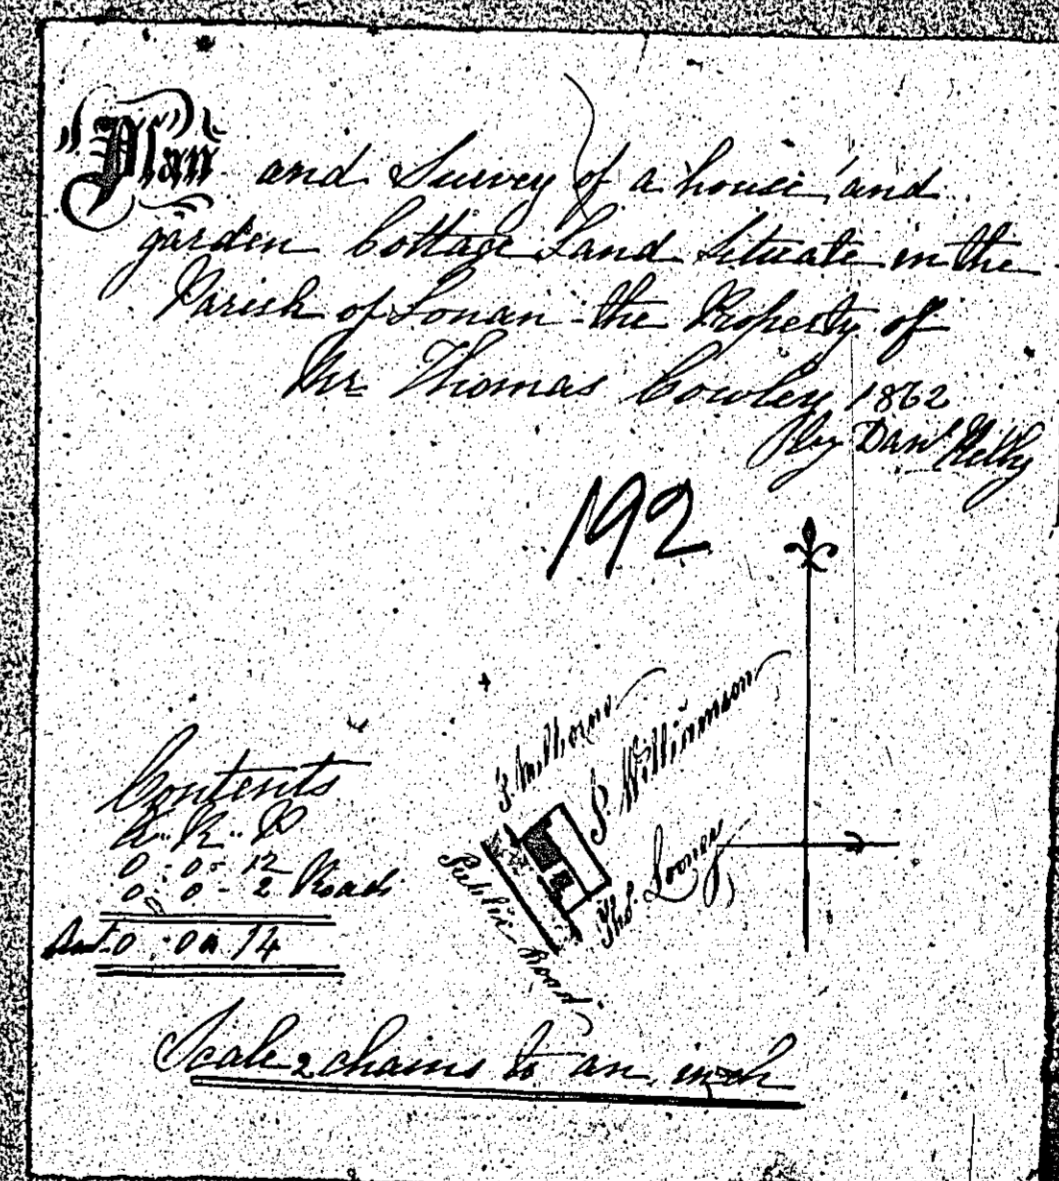 Plan and Survey of a house and
garden Cottage Land Situate in the
Parish of Lonan the Property of
Mr Thomas Cowley 1862
By Danl Kelly
192
S. Williamson
Thos. Looney
Public Road
Contents
A.. R.. P
0 - 0 - 12
0 - 0 - 2 Road
0 : 0 : 14
Scale 2 chains to an inch